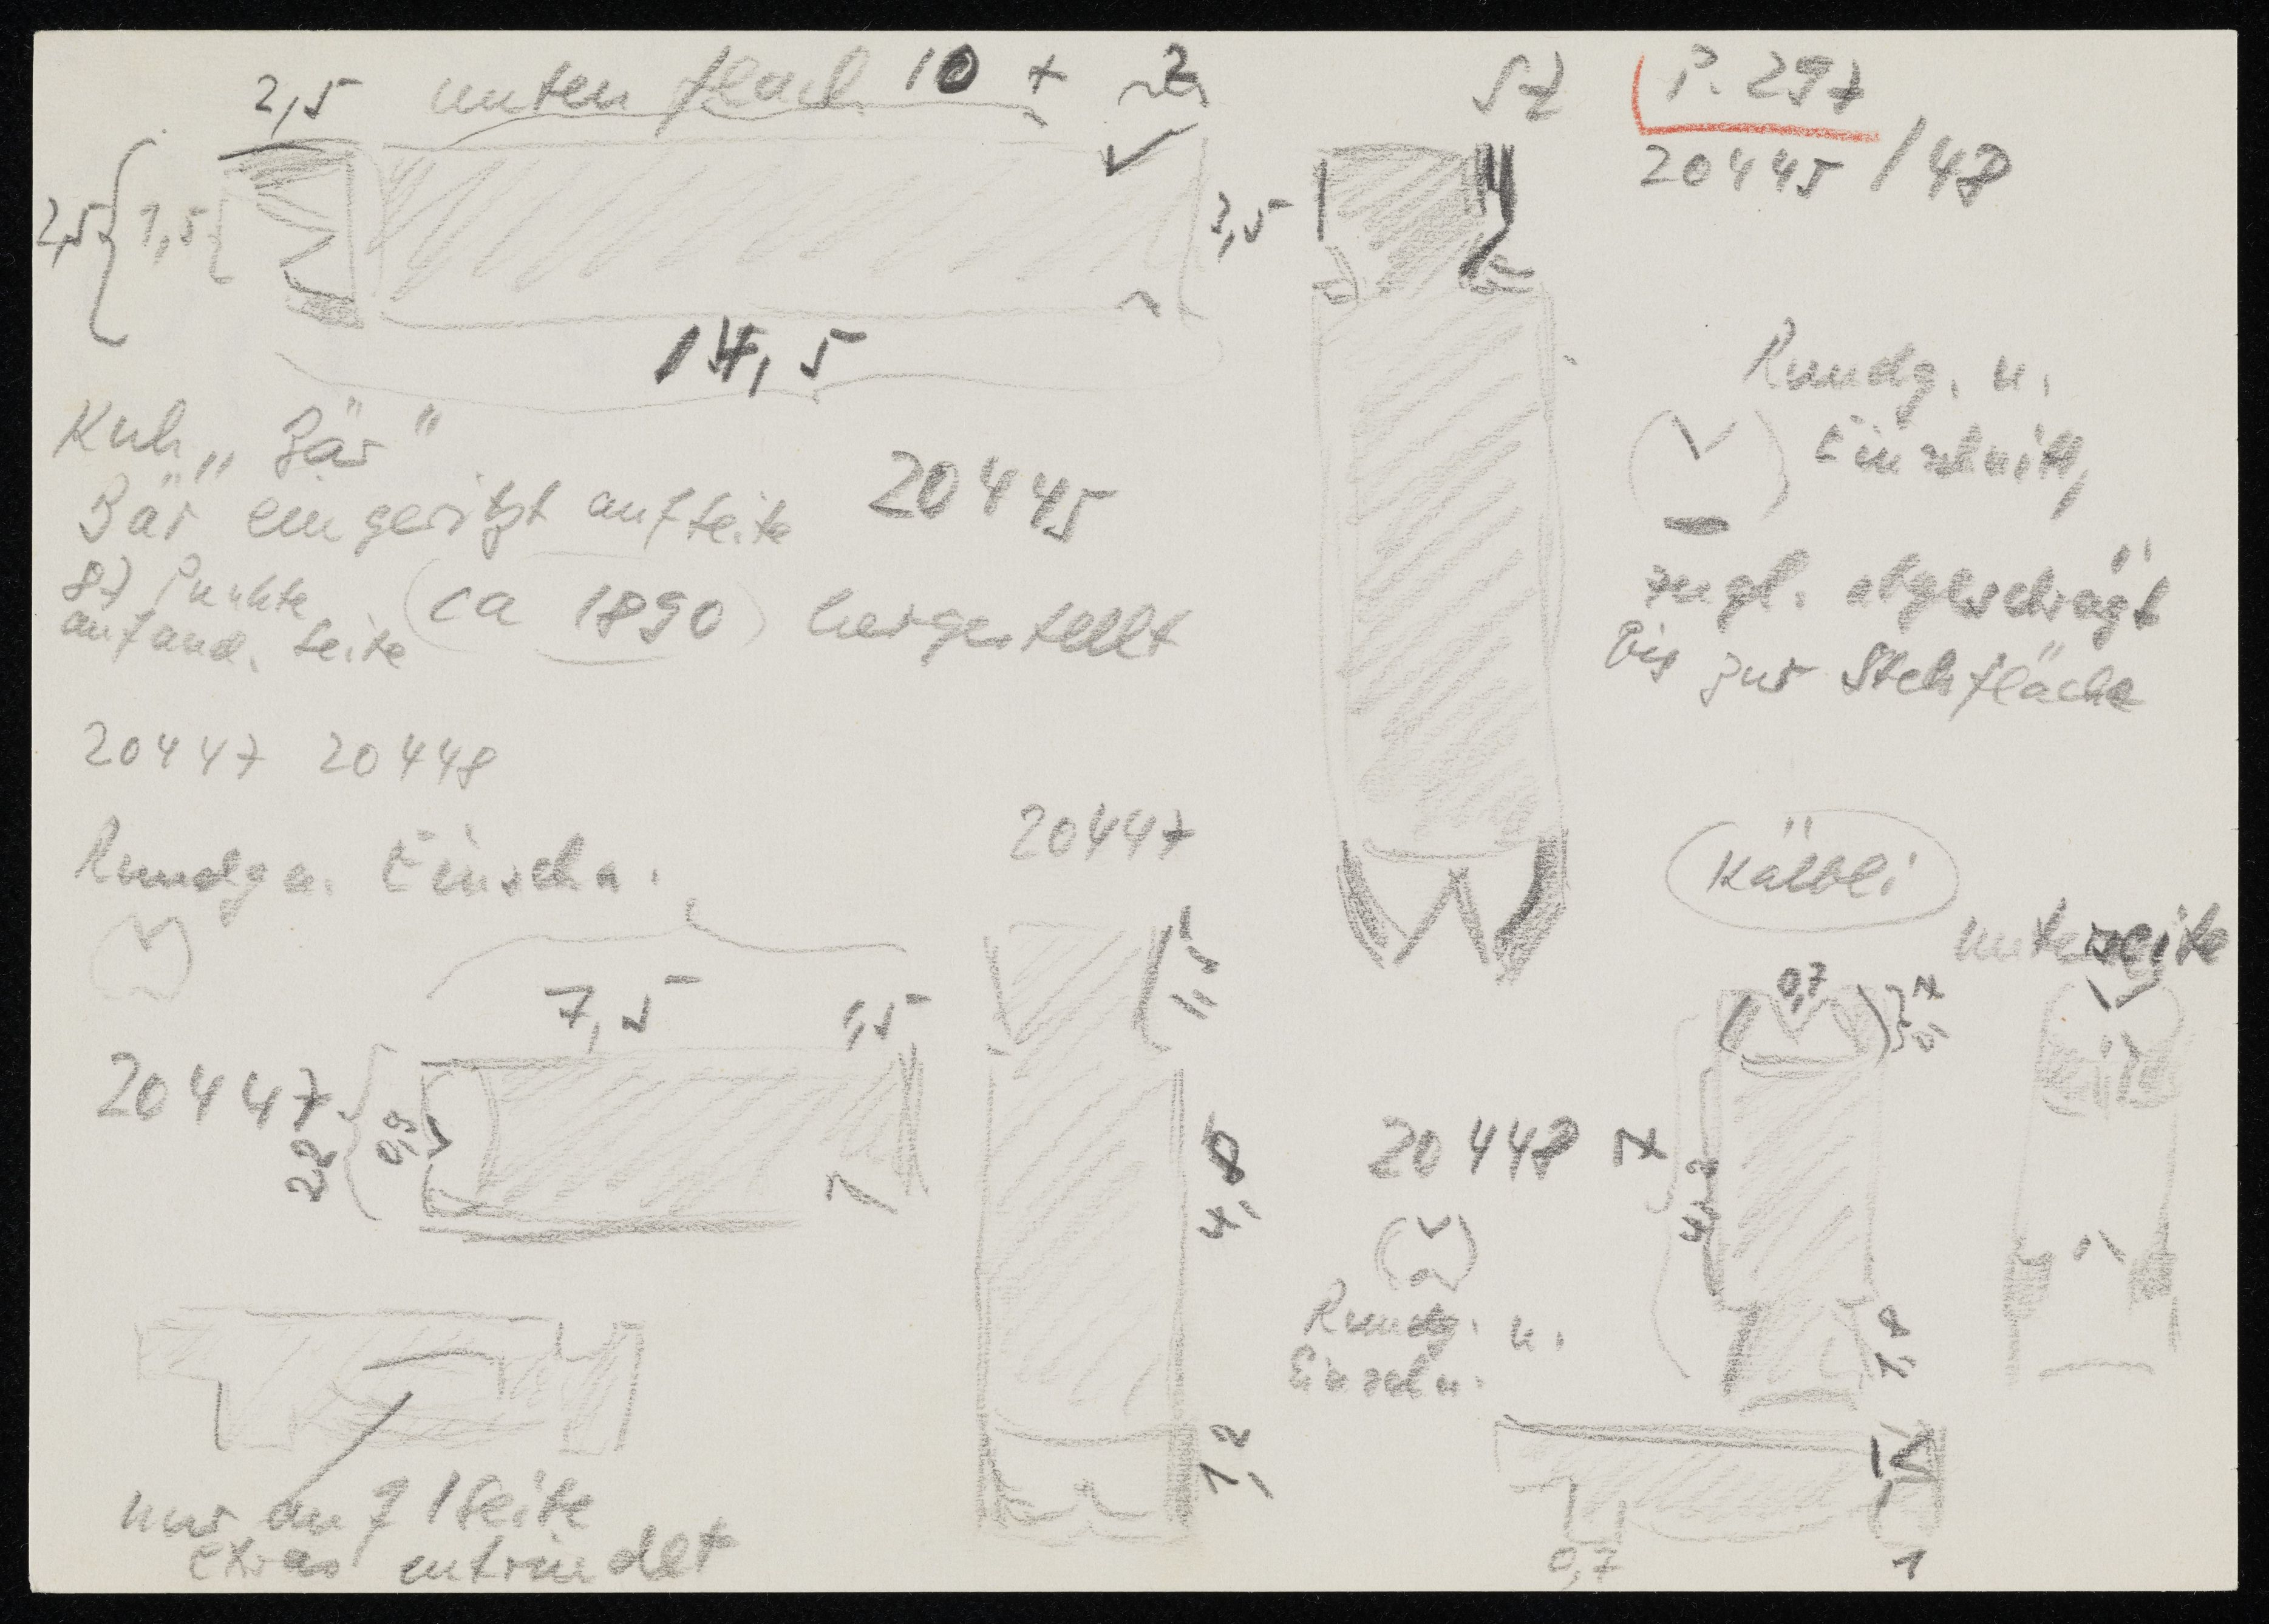 2,5 unten flach 10 x
SZ P. 297
20445 / 48
2,5 1,5
3,5
14,5
Kuh „Bär"
Bär eingeritzt auf Seite 20445
87 Punkte
auf and. Seite (ca 1890) hergestellt
Rundg. u.
Einschnitt,
zugl. abgeschrägt
bis zur Stehfläche
20447 20448
Rundg u. Einschn.
20447
Kälbli
Unterseite
7,5 1,5
1,5
0,7
20447
0,9
4,8
20448
4,2
Rundg. u.
Einschn.
1,2
nur auf 1 Seite
extra entrindet
0,7
1